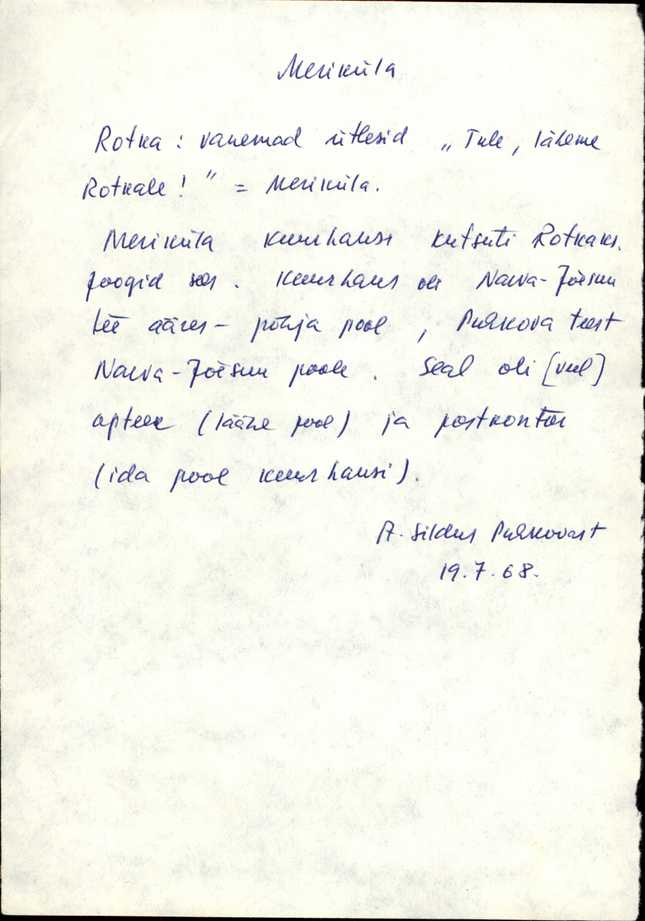 Meriküla
Rotka : vanemad ütlesid „Tule, läheme
Rotkale!" = Meriküla.
Meriküla kuurhausi kutsuti Rotkaks.
Joogid sees. Kuurhaus oli Narva-Jõesuu
tee ääres - põhja pool, Purkova teest
Narva-Jõesuu poole. Seal oli [veel]
apteek (lääne pool) ja postkontor
(ida pool kuurhausi).
A. Sildus Purkovast
19.7.68.